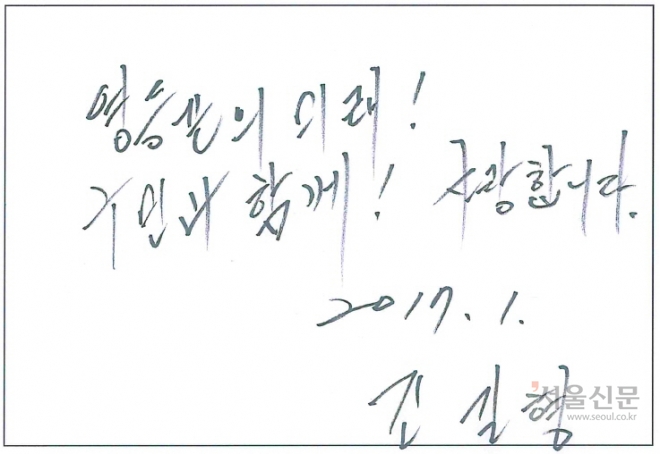 영등포의 미래!
구민과 함께! 사랑합니다.
2017. 1.
조 길 형
서울신문
www.seoul.co.kr